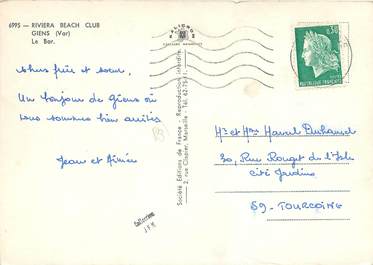 6995 — RIVIERA BEACH CLUB
GIENS (Var)
Le Bar.
chers frère et soeur,
Un bonjour de Giens où
nous sommes bien arrivés
Jean et Aimée
Société Éditions de France - Reproduction interdite
2, rue Clapier, Marseille - Tél. 62-75-11
0,30
REPUBLIQUE FRANÇAISE
Mr et Mme Marcel Duhamel
30, Rue Rouget de l'Isle
cité Jardins
59 - TOURCOING